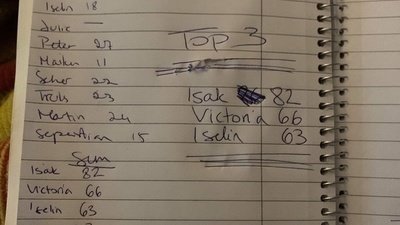 Iselin 18
Julie —
Peter 27
11
22
Truls 23
Martin 24
15
Sum
Isak 82
Victoria 66
Iselin 63
Top 3
Isak 82
Victoria 66
Iselin 63